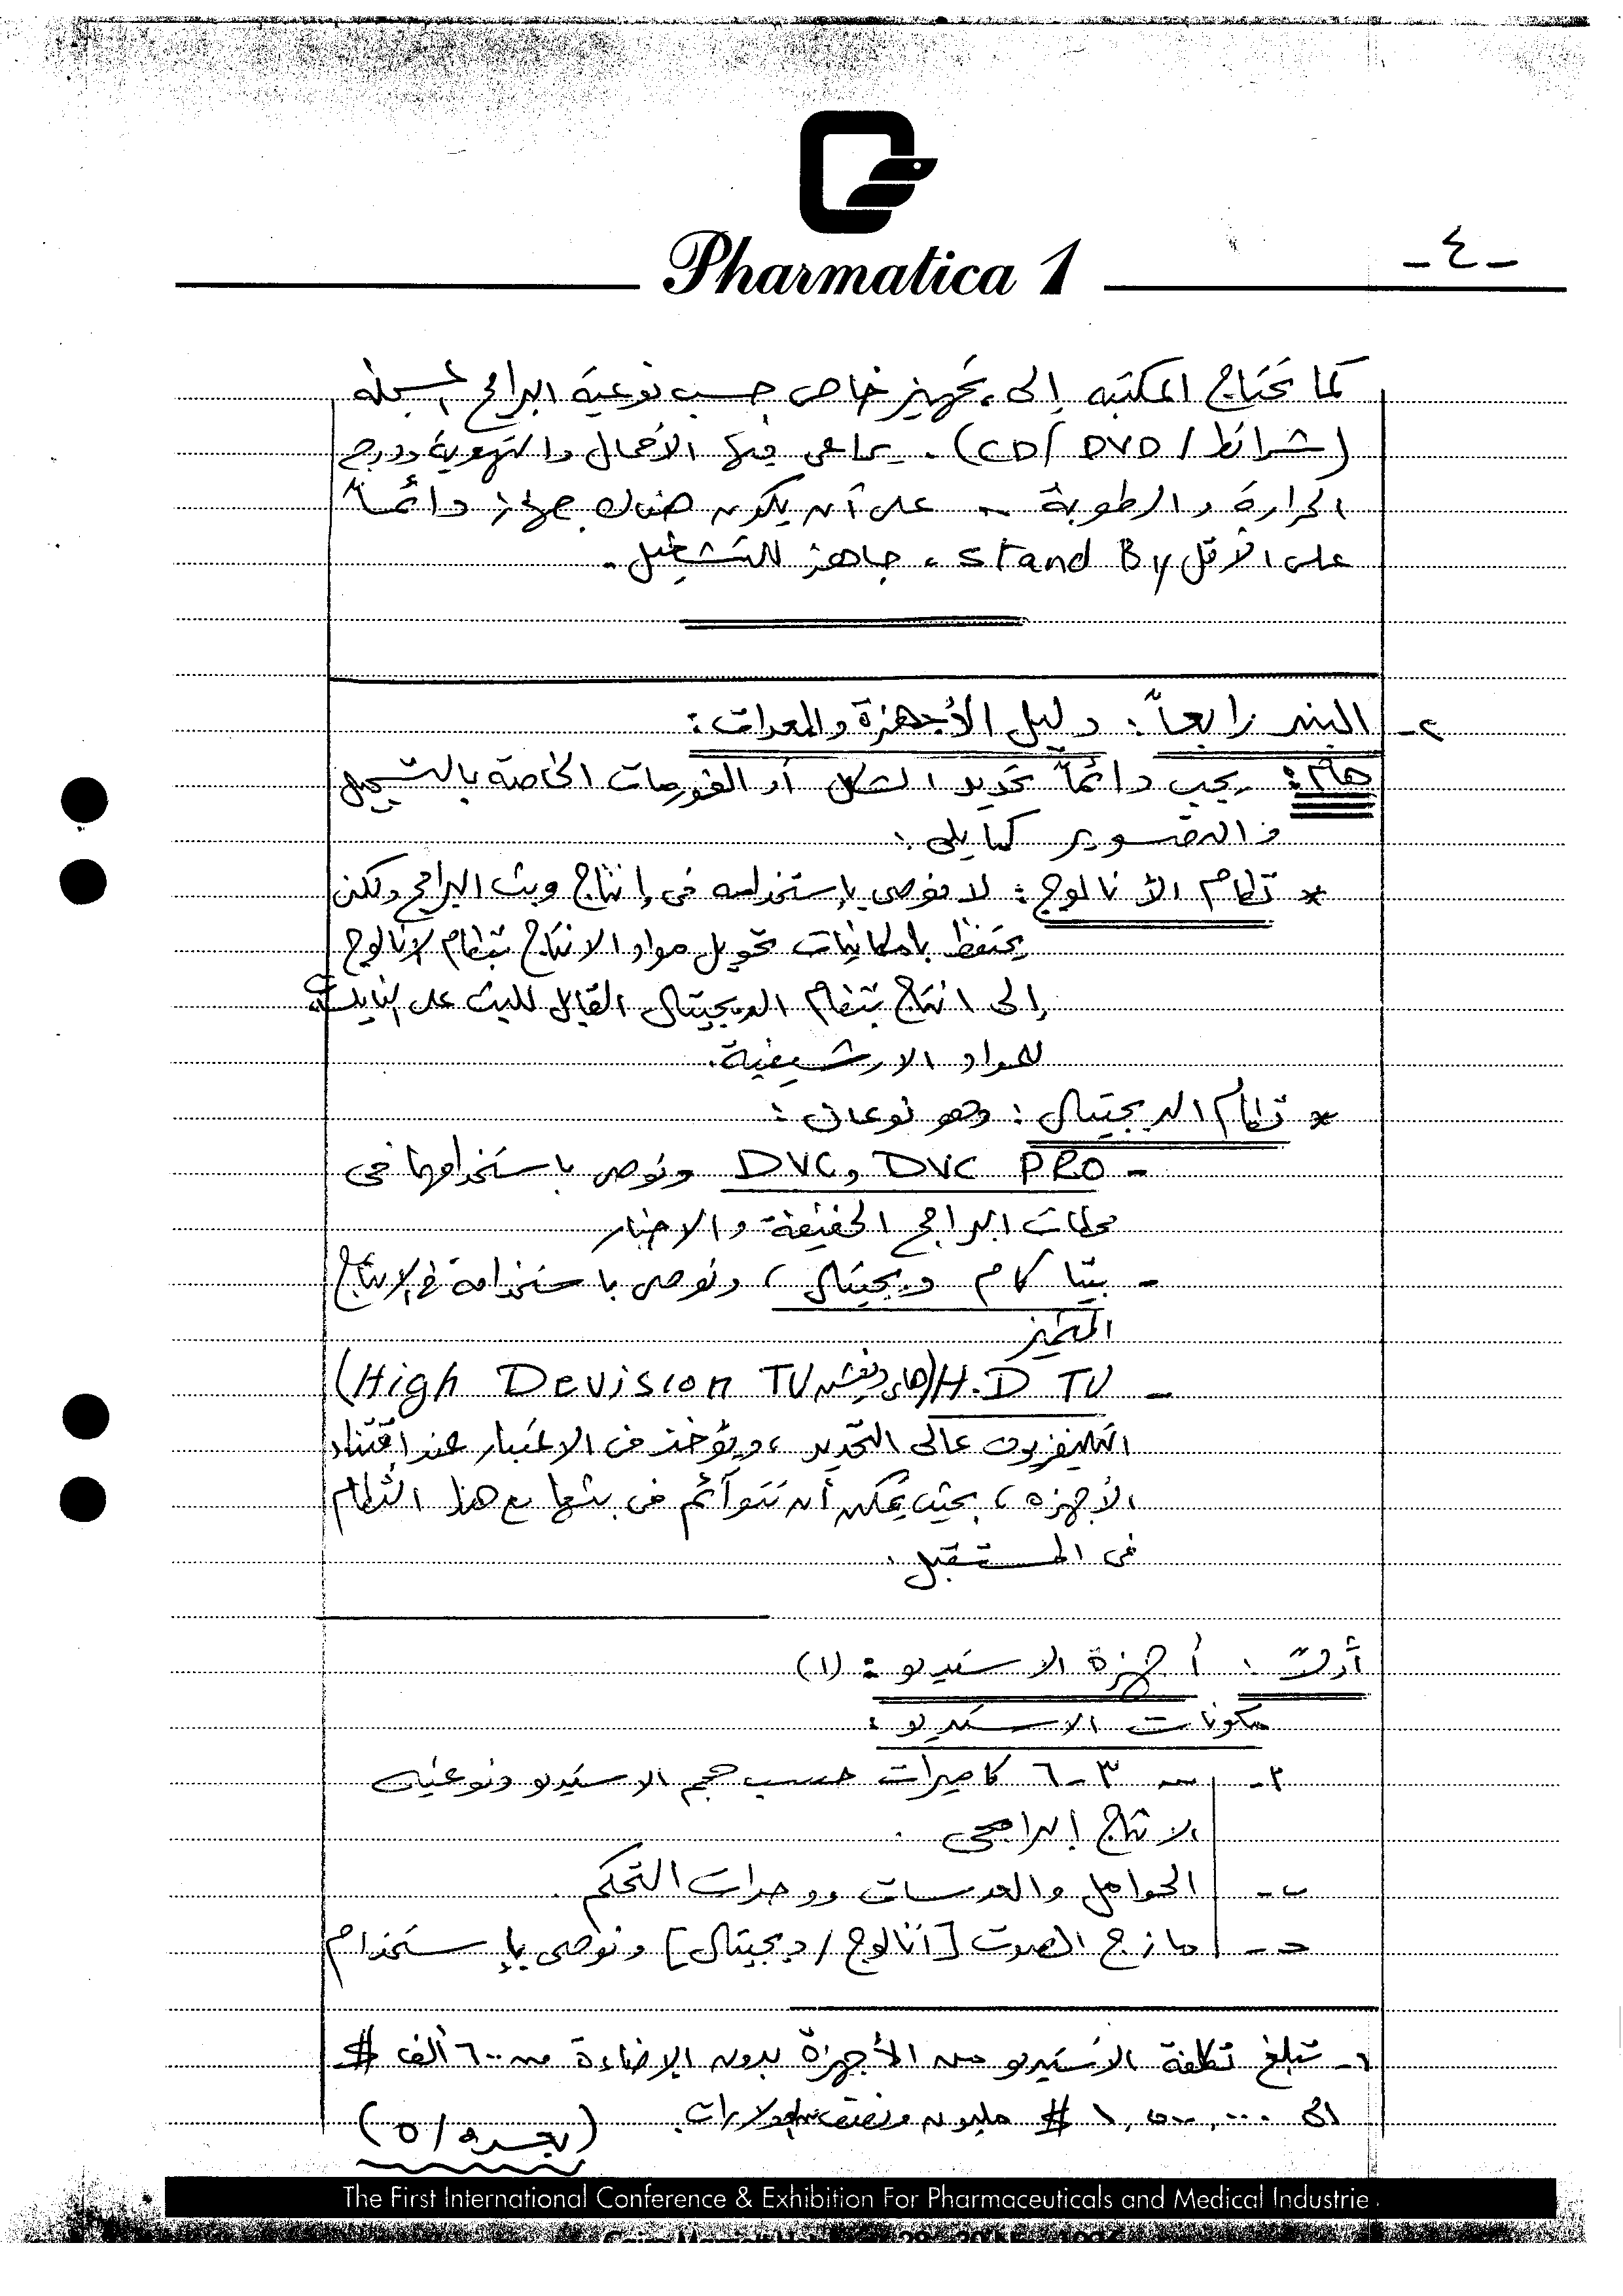 Pharmatica 1
- ٤ -
كما تحتاج المكتبه إلى تجهيز خاص حسب نوعية البرامج المسجله
(شرائط / CD / DVD). يراعى فيها الأحمال والتهوية ودرجة
الحرارة والرطوبة - على أن يكون هناك جهاز دائماً
على الأقل stand By، جاهز للتشغيل.
٢- البند رابعاً: دليل الأجهزة والمعدات:
هام: يجب دائماً تحديد الشكل أو الفورمات الخاصة بالتسجيل
والتصوير كما يلى:
* نظام الأنالوج: لا نوصى بإستخدامه فى إنتاج وبث البرامج ولكن
يحتفظ بإمكانيات تحويل مواد الانتاج بنظام الأنالوج
إلى انتاج بنظام الديجيتال القابل للبث على النايل سات،
للمواد الارشيفية.
* نظام الديجيتال: وهو نوعان:
- DVC, DVC PRO ونوصى باستخدامها فى
محطات البرامج الخفيفة والاخبار
- بيتا كام ديجيتال، ونوصى باستخدامة فى الانتاج
المتميز
- H.D TV (هاى ديفيشن High Devision TV)
التليفزيون عالى التحديد، ويؤخذ فى الاعتبار عند اقتناء
الأجهزه، بحيث يمكن أن تتوائم فى بثها مع هذا النظام
فى المستقبل.
أولاً: أجهزة الاستديو: (١)
مكونات الاستديو:
٢- من ٣-٦ كاميرات حسب حجم الاستديو ونوعية
الانتاج البرامجى.
ب- الحوامل والعدسات ووحدات التحكم.
ح- مازج الصوت [أنالوج / ديجيتال] ونوصى بإستخدام
١- تبلغ تكلفة الأستديو من الأجهزة بدون الإضاءة من ٦٠٠ ألف $
الى ١,٥٠٠,٠٠٠ $ مليون ونصف دولارات.
(بعده / ٥)
The First International Conference & Exhibition For Pharmaceuticals and Medical Industrie